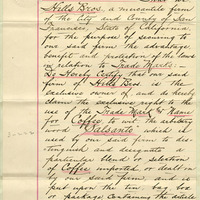 Hills Bros. a mercantile firm
of the City and County of San
Francisco, State of California
for the purpose of securing to
our said firm the advantage
benefit and protection of the laws
in relation to Trade Marks:
Do Hereby Certify that our said
firm of Hills Bros. is the
exclusive owner of and do hereby
claim the exclusive right to the
use of the Trade Mark & Name
for Coffee to wit the arbitrary
word "Balsanto" which is
used by our said firm to dis-
tinguish and designate a
particular blend or selection
of Coffee imported or dealt in
by our said firm and is
put upon the tin, bag box
or package containing the article